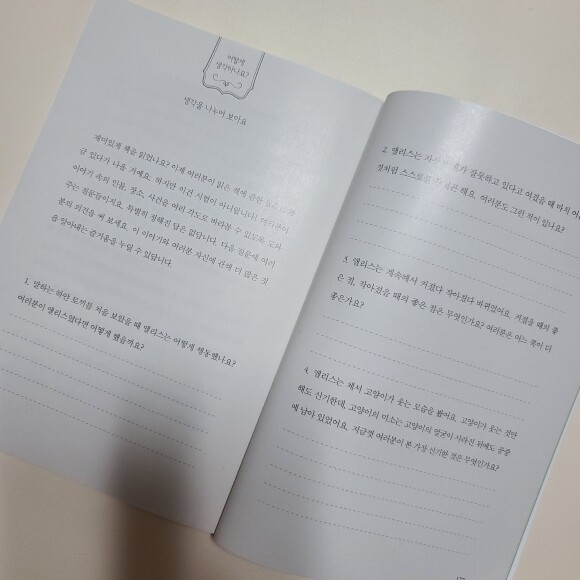 어떻게
생각하나요?
생각을 나누어 보아요
재미있게 책을 읽었나요? 이제 여러분이 읽은 책에 관한 질문이 조
금 있다가 나올 거예요. 하지만 이건 시험이 아니랍니다! 여러분이
이야기 속의 인물, 장소, 사건을 여러 각도로 바라볼 수 있도록 도와
주는 질문들이지요. 특별히 정해진 답은 없답니다. 다음 질문에 여러
분의 의견을 써 보세요. 이 이야기와 여러분 자신에 관해 더 많은 것
을 알아내는 즐거움을 누릴 수 있답니다.
1. 말하는 하얀 토끼를 처음 보았을 때 앨리스는 어떻게 행동했나요?
여러분이 앨리스였다면 어떻게 했을까요?
2. 앨리스는 자기 잘못하고 있다고 여겼을 때 마치
것처럼 스스로를 해요. 여러분도 그런 적이 있나요?
3. 앨리스는 계속해서 커졌다 작아졌다 바뀌었어요. 커졌을 때의 좋
은 점, 작아졌을 때의 좋은 점은 무엇인가요? 여러분은 어느 쪽이 더
좋은가요?
4. 앨리스는 체셔 고양이가 웃는 모습을 봤어요. 고양이가 웃는 것만
해도 신기한데, 고양이의 미소는 고양이의 얼굴이 사라진 뒤에도 공중
에 남아 있었어요. 지금껏 여러분이 본 가장 신기한 것은 무엇인가요?